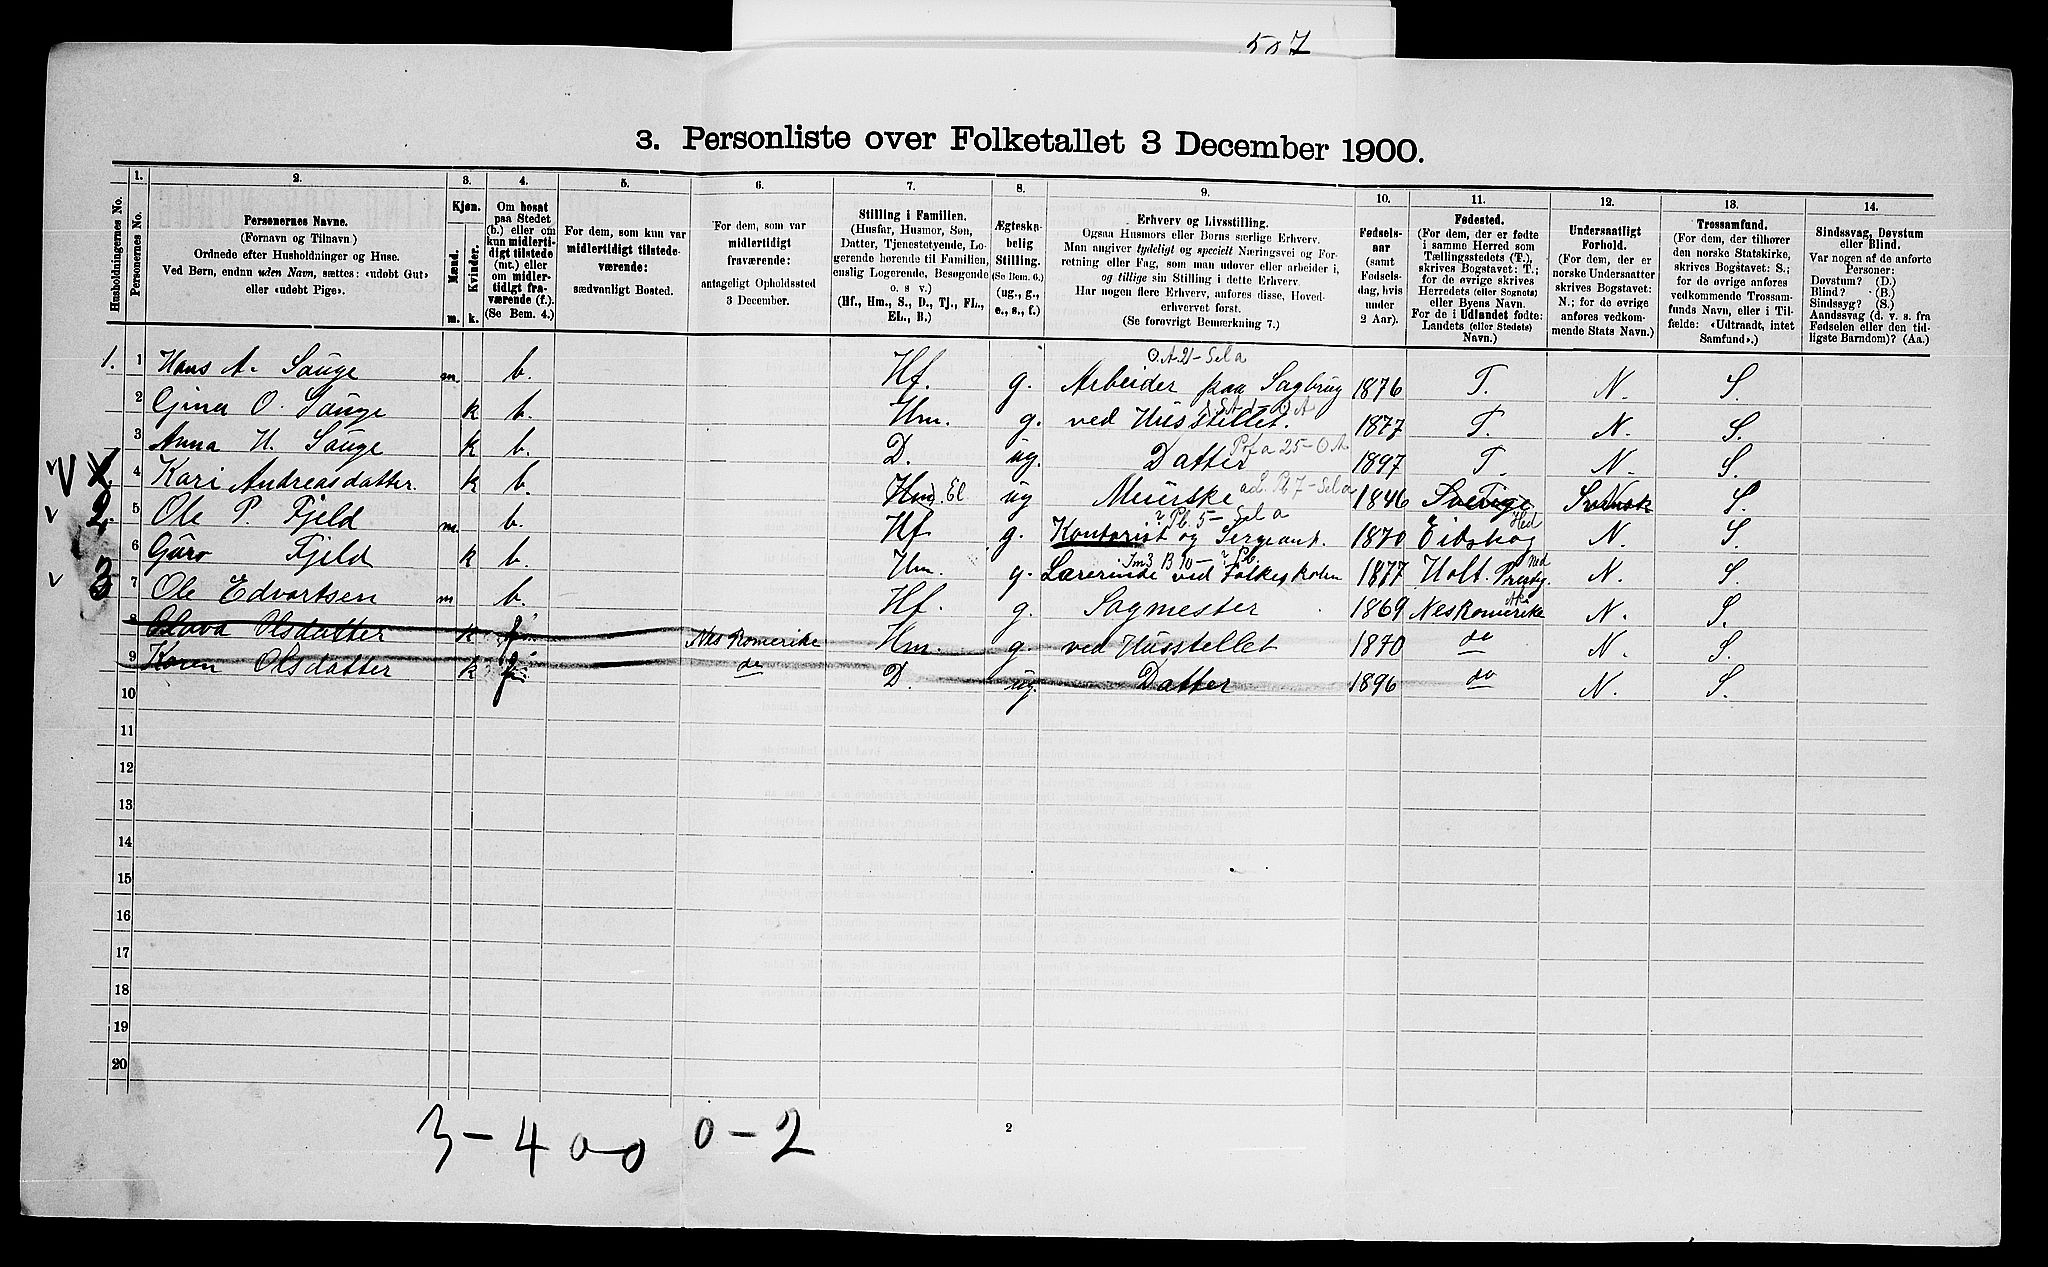 507
3. Personliste over Folketallet 3 December 1900.
Husholdningernes No.
1.
Personernes No.
2.
Personernes Navne.
(Fornavn og Tilnavn)
Ordnede efter Husholdninger og Huse.
Ved Børn, endnu uden Navn, sættes: «udøbt Gut»
eller «udøbt Pige».
3.
Kjøn.
Mænd.
Kvinder.
m.
k.
4.
Om bosat
paa Stedet
(b.) eller om
kun midlerti-
digt tilstede
(mt.) eller
om midler-
tidigt fra-
værende (f.).
(Se Bem. 4.)
5.
For dem, som kun var
midlertidigt tilstede-
værende:
sædvanligt Bosted.
6.
For dem, som var
midlertidigt
fraværende:
antageligt Opholdssted
3 December.
7.
Stilling i Familien.
(Husfar, Husmor, Søn,
Datter, Tjenestetyende, Lo-
gerende hørende til Familien,
enslig Logerende, Besøgende
o. s v.)
(Hf., Hm., S., D., Tj., FL.,
EL., B.)
8.
Ægteska-
belig
Stilling.
(Se Bem. 6.)
(ug., g.,
e., s., f.)
9.
Erhverv og Livsstilling.
Ogsaa Husmors eller Børns særlige Erhverv.
Man angiver tydeligt og specielt Næringsvei og For-
retning eller Fag, som man udøver eller arbeider i,
og tillige sin Stilling i dette Erhverv.
Har nogen flere Erhverv, anføres disse, Hoved-
erhvervet først.
(Se forøvrigt Bemærkning 7.)
10.
Fødsels-
aar
(samt
Fødsels-
dag, hvis
under
2 Aar).
11.
Fødested.
(For dem, der er fødte
i samme Herred som
Tællingsstedets (T.),
skrives Bogstavet: T.;
for de øvrige skrives
Herredets (eller Sognets)
eller Byens Navn.
For de i Udlandet fødte:
Landets (eller Stedets)
Navn.)
12.
Undersaatligt
Forhold.
(For dem, der er
norske Undersaatter
skrives Bogstavet:
N.; for de øvrige
anføres vedkom-
mende Stats Navn.)
13.
Trossamfund.
(For dem, der tilhører
den norske Statskirke,
skrives Bogstavet: S.;
for de øvrige anføres
vedkommende Trossam-
funds Navn, eller i Til-
fælde: «Udtraadt, intet
Samfund».)
14.
Sindssvag, Døvstum
eller Blind.
Var nogen af de anførte
Personer:
Døvstum? (D.)
Blind? (B.)
Sindssyg? (S.)
Aandssvag (d. v. s. fra
Fødselen eller den tid-
ligste Barndom)? (Aa.)
1. 1 Hans A. Sauge m. b. Hf. g. Arbeider paa Sagbrug 1876 T. N. S.
2 Gina O. Sauge k b. Hm. g. ved Husstellet. 1877 T. N. S.
3 Anna H. Sauge k b. D. ug. Datter 1897 T. N. S.
4 Kari Andreasdatter. k b. Hm. El ug 1846 Sverige Svensk S.
2. 5 Ole P. Fjeld m b. Hf g. Kontorist og Sergeant. 1870 Eidskog Hed N. S.
6 Guro Fjeld k b. Hm. g. Lærerinde ved Folkeskolen 1877 Holt. N. S.
3 7 Ole Edvartsen m b. Hf g. Sagmester 1869 Nes Romerike Ak N. S.
8 Olava Olsdatter k f. Nes Romerike Hm. g. ved Husstellet 1870 do N. S.
9 Karen Olsdatter k f. do D. ug. Datter 1896 do N. S.
10
11
12
13
14
15
16
17
18
19
20
3 - 4 0 0 0 - 2
2